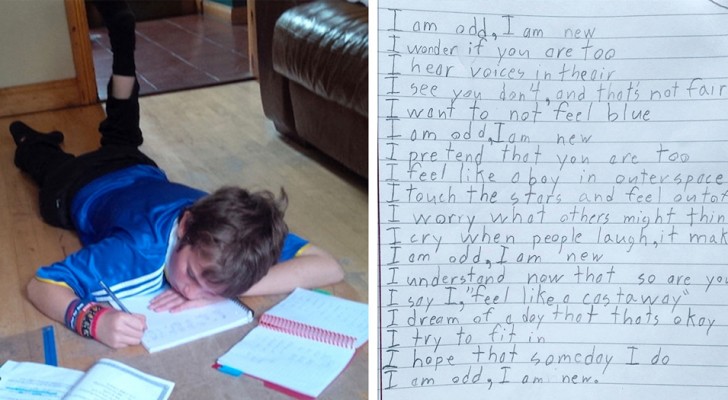 I am odd, I am new
I wonder if you are too
I hear voices in theair
I see you don't, and that's not fair
I want to not feel blue
I am odd, I am new
I pretend that you are too
I feel like a boy in outerspace
I touch the stars and feel
I worry what others might thin
I cry when people laugh, it mak
I am odd, I am new
I understand now that so are you
I say I, "feel like a castaway"
I dream of a day that thats okay
I try to fit in
I hope that someday I do
I am odd, I am new.